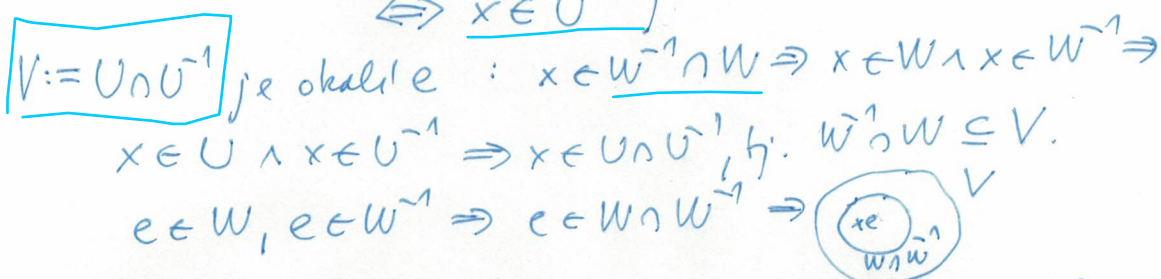 ⇔ x ∈ U
V := U ∩ U⁻¹ je okolí e : x ∈ W⁻¹ ∩ W ⇒ x ∈ W ∧ x ∈ W⁻¹ ⇒
x ∈ U ∧ x ∈ U⁻¹ ⇒ x ∈ U ∩ U⁻¹, tj. W⁻¹ ∩ W ⊆ V.
e ∈ W, e ∈ W⁻¹ ⇒ e ∈ W ∩ W⁻¹ ⇒ xe V
W ∩ W⁻¹